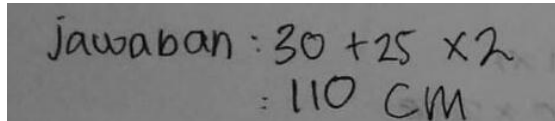 jawaban : 30 + 25 x 2
: 110 CM